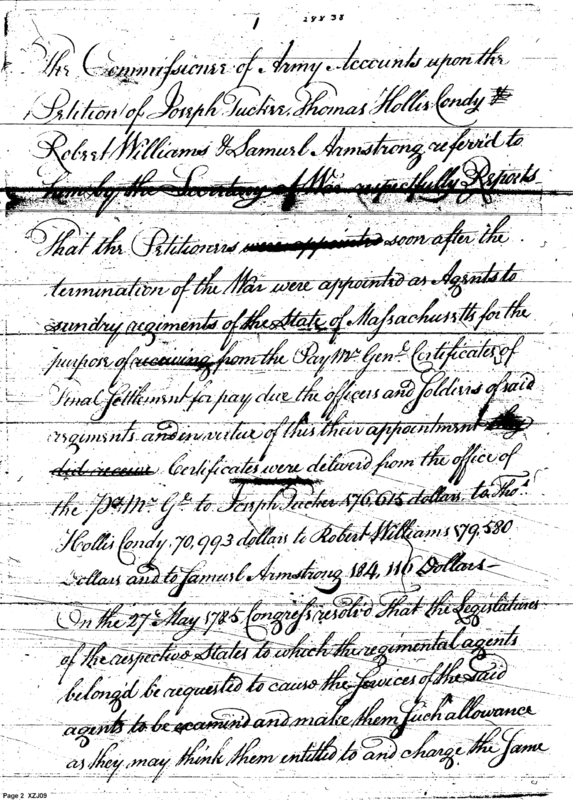 1 2the 38
The Commissioner of Army Accounts upon the
Petition of Joseph Tucker, Thomas Hollis Condy &
Robert Williams & Samuel Armstrong referr'd to
him by the Secretary of War respectfully Reports
That the Petitioners were appointed soon after the
termination of the War were appointed as Agents to
sundry regiments of the State of Massachusetts for the
purpose of receiving from the Pay Mr Genl Certificates of
Final Settlement for pay due the officers and Soldiers of said
regiments and in virtue of this their appointment they
did receive Certificates were deliverd from the office of
the P. Mr Gl to Joseph Tucker 176,615 dollars, to Thos
Hollis Condy, 70,993 dollars to Robert Williams 179,580
Dollars and to Samuel Armstrong 184,110 Dollars—
On the 27th May 1785 Congress resolv'd That the Legislatures
of the respective States to which the regimental agents
belong'd be requested to cause the Services of the Said
agents to be examind and make them Such allowance
as they may think them entitled to and charge the Same
Page 2 XZJ09